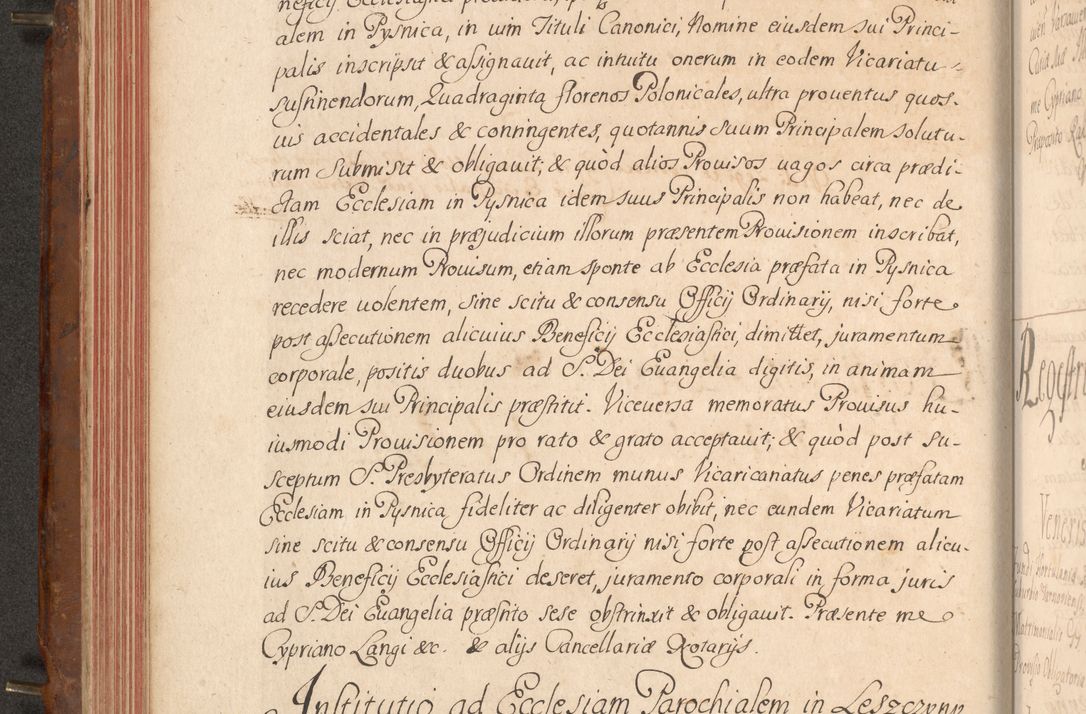 alem in Pysnica, in vim Tituli Canonici, Nomine eiusdem sui Princi-
palis inscripsit & assignauit, ac intuitu onerum in eodem Vicariatu
sustinendorum, Quadraginta florenos Polonicales, ultra prouentus quos-
uis accidentales & contingentes, quotannis suum Principalem solutu-
rum submisit & obligauit; & quòd alios Prouisos uagos circa prædi-
ctam Ecclesiam in Pysnica idem suus Principalis non habeat, nec de
illis sciat, nec in præjudicium illorum præsentem Prouisionem inscribat,
nec modernum Prouisum, etiam sponte ab Ecclesia præfata in Pysnica
recedere uolentem, sine scitu & consensu Officij Ordinarij, nisi forte
post assecutionem alicuius Beneficij Ecclesiastici, dimittet, juramentum
corporale, positis duobus ad S. Dei Euangelia digitis, in animam
eiusdem sui Principalis præstitit. Viceuersa memoratus Prouisus hu-
iusmodi Prouisionem pro rato & grato acceptauit; & quòd post su-
sceptum S. Presbyteratus Ordinem munus Vicaricanatus penes præfatam
Ecclesiam in Pysnica fideliter ac diligenter obibit, nec eundem Vicariatum
sine scitu & consensu Officij Ordinarij nisi forte post assecutionem alicu-
ius Beneficij Ecclesiastici deseret, juramento corporali in forma juris
ad S. Dei Euangelia præstito sese obstrinxit & obligauit. Præsente me
Cypriano Langi &c. & alijs Cancellariæ Notarijs.
Institutio ad Ecclesiam Parochialem in Leszczyny
me Cypriano
Regestr
Veneris
Matrimonialis
Prouisio Obligatoria